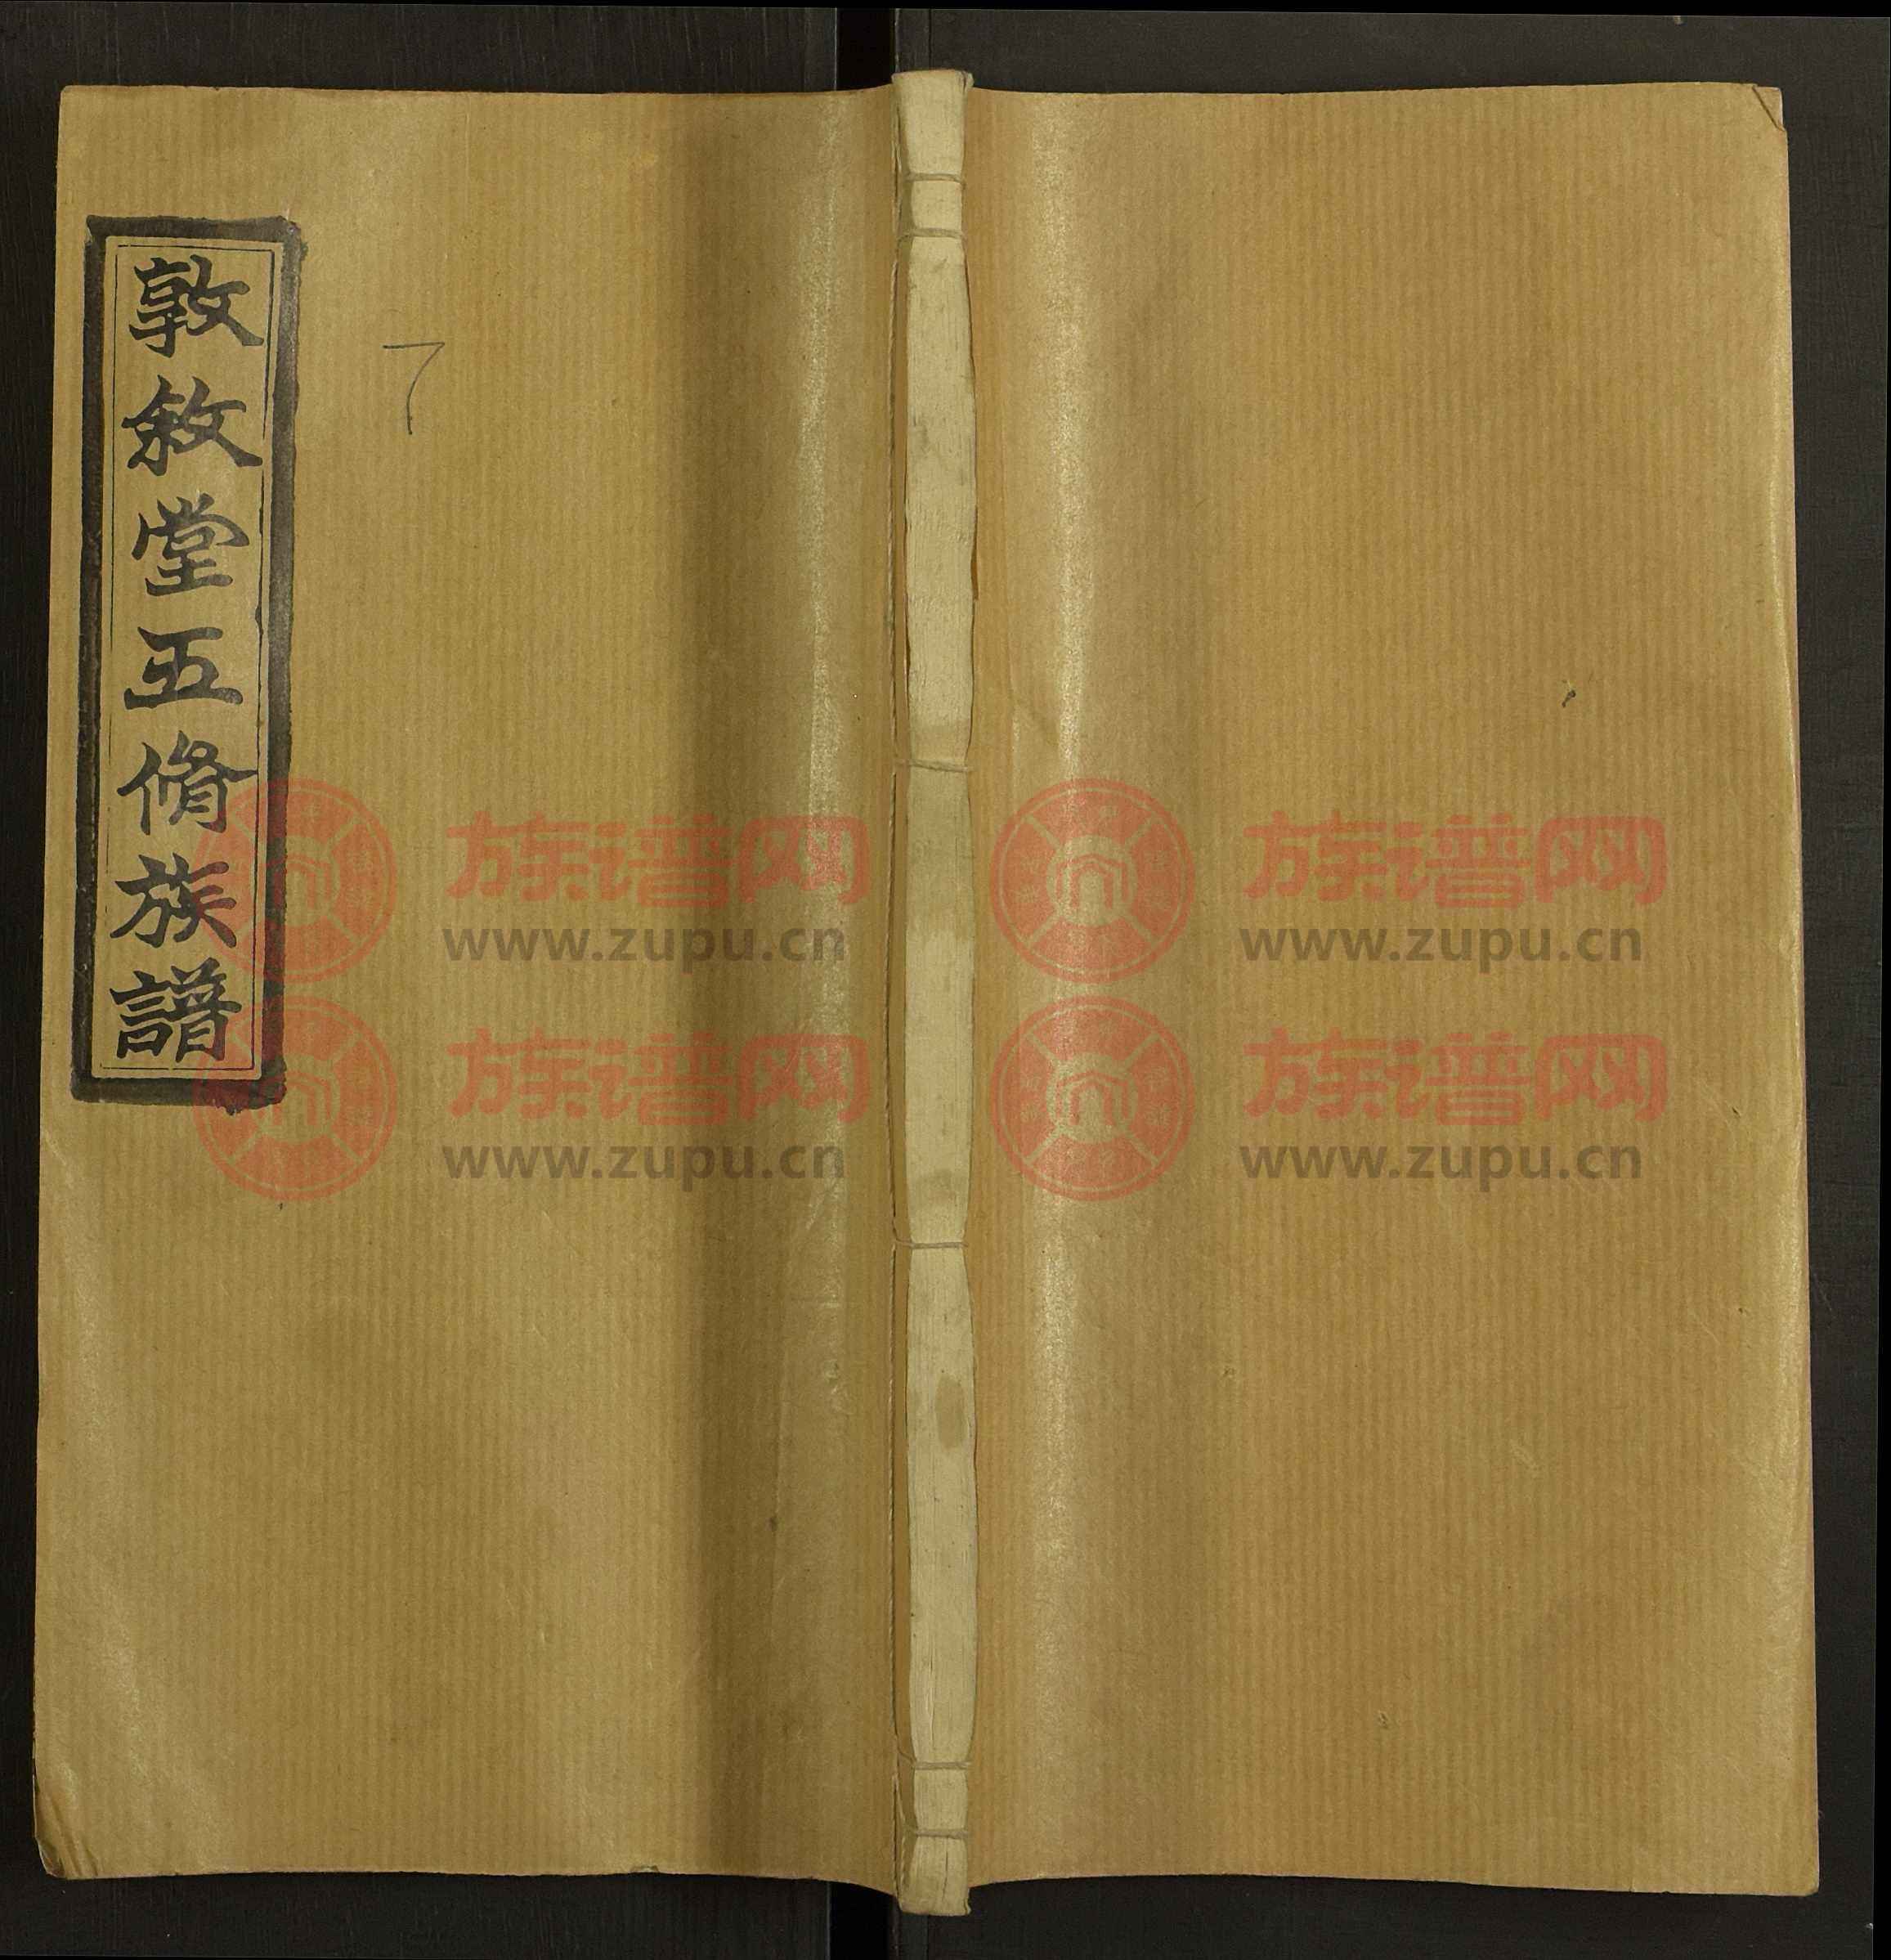 敦敘堂五脩族譜
7
族谱网
www.zupu.cn
族谱网
www.zupu.cn
族谱网
www.zupu.cn
族谱网
www.zupu.cn